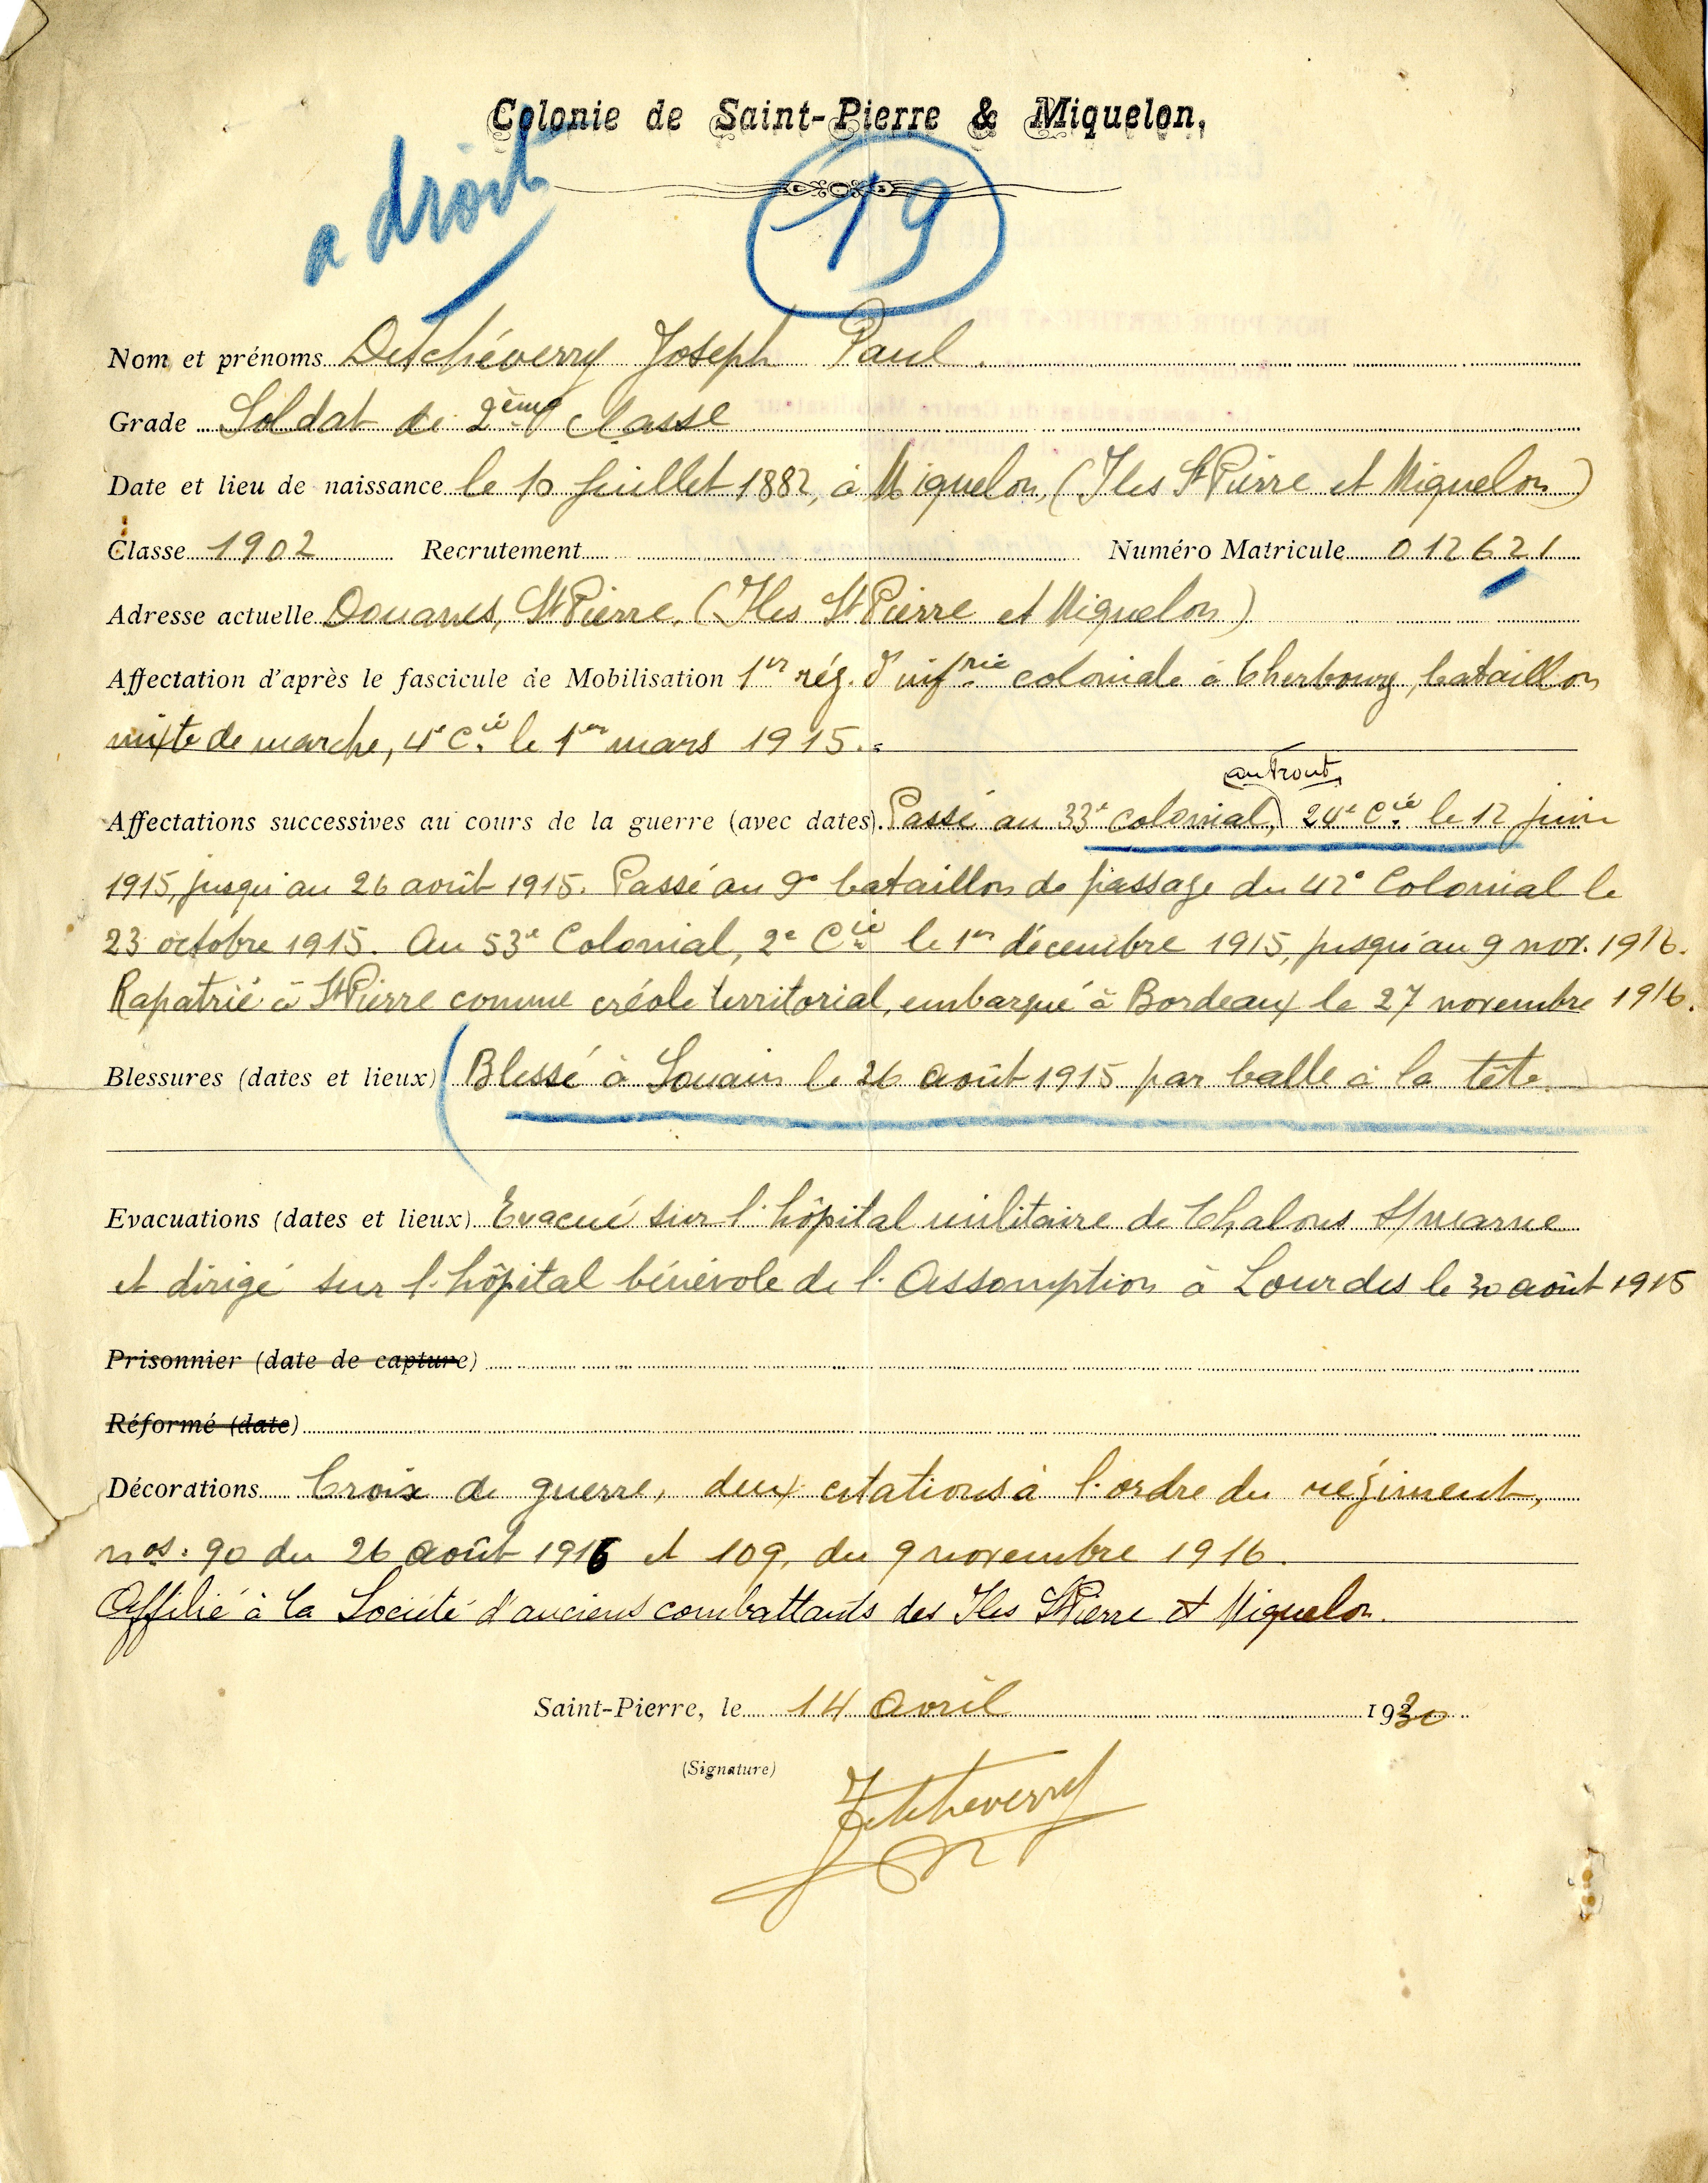 Colonie de Saint-Pierre & Miquelon,
a droit
19
Nom et prénoms Detchéverry Joseph Paul.
Grade Soldat de 2ème classe
Date et lieu de naissance le 10 juillet 1882, à Miquelon, (Iles St Pierre et Miquelon)
Classe 1902 Recrutement Numéro Matricule 012621
Adresse actuelle Douanes, St Pierre, (Iles St Pierre et Miquelon)
Affectation d'après le fascicule de Mobilisation 1er rég. d'infrie coloniale à Cherbourg, bataillon
mixte de marche, 4e Cie le 1er mars 1915.
au front
Affectations successives au cours de la guerre (avec dates). Passé au 33e colonial, 24e Cie le 12 juin
1915, jusqu'au 26 août 1915. Passé au 9e bataillon de passage du 42e Colonial le
23 octobre 1915. Au 53e Colonial, 2e Cie le 1er décembre 1915, jusqu'au 9 nov. 1916.
Rapatrié à St Pierre comme créole territorial, embarqué à Bordeaux le 27 novembre 1916.
Blessures (dates et lieux) Blessé à Souain le 26 août 1915 par balle à la tête.
Evacuations (dates et lieux) Evacué sur l'hôpital militaire de Chalons s/marne
et dirigé sur l'hôpital bénévole de l'Assomption à Lourdes le 30 août 1915
Prisonnier (date de capture)
Réformé (date)
Décorations Croix de guerre, deux citations à l'ordre du régiment,
nos. 90 du 26 août 1916 et 109, du 9 novembre 1916.
Affilié à la Société d'anciens combattants des Iles St Pierre et Miquelon.
Saint-Pierre, le 14 avril 1930
(Signature)
J Detcheverry